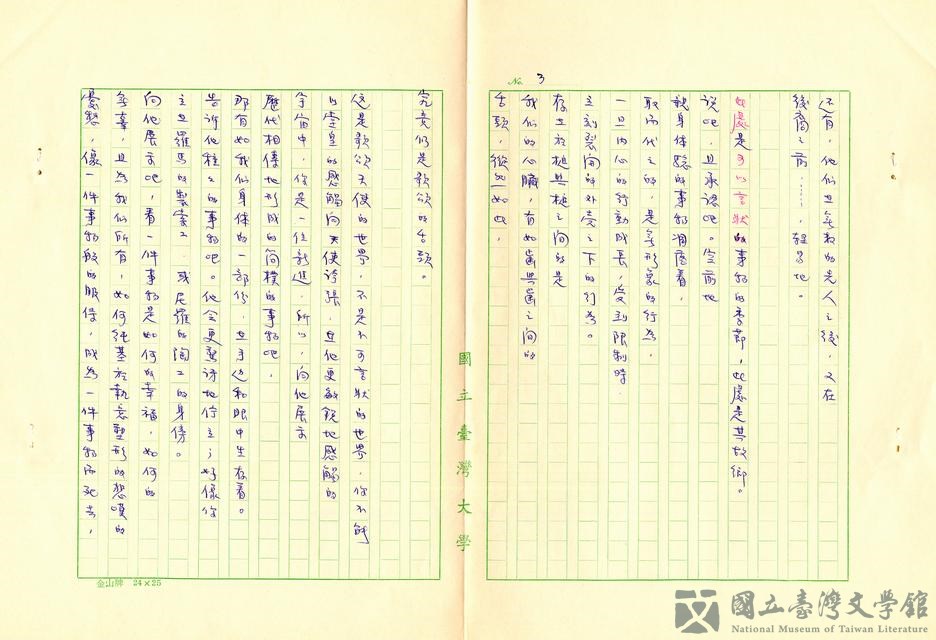 No. 3
還有,他們世無數的先人之後,又在
後裔之前……,輕易地。
此處是可以言狀的事物的季節,此處是其故鄉。
說吧,且承認吧。空前地
就身體驗的事物凋落著,
取而代之的,是無形象的行為,
一旦內心的行動成長,受到限制時
立刻裂開的外壳之下的行為。
存在於槌與槌之間的是
我們的心臟,有如齒與齒之間的
舌頭,縱如此,
究竟仍是歌頌的舌頭。
這是歌頌天使的世界,不是不可言狀的世界,你不能
以堂皇的感觸向天使誇張,在他更敏銳地感觸的
宇宙中,你是一位新進,所以,向他展示
歷代相傳地形成的簡樸的事物吧,
那有如我們身體的一部份,在手邊和眼中生存着。
告訴他種種的事物吧。他會更驚訝地佇立;好像你
立在羅馬的製索工,或尼羅的陶工的身傍。
向他展示吧,看一件事物是如何的幸福,如何的
無辜,且為我們所有,如何純基於執意塑形的悲嘆的
憂愁,像一件事物般的服侍,成為一件事物而死去,
國立臺灣大學
金山牌 24×25
國立臺灣文學館
National Museum of Taiwan Literature